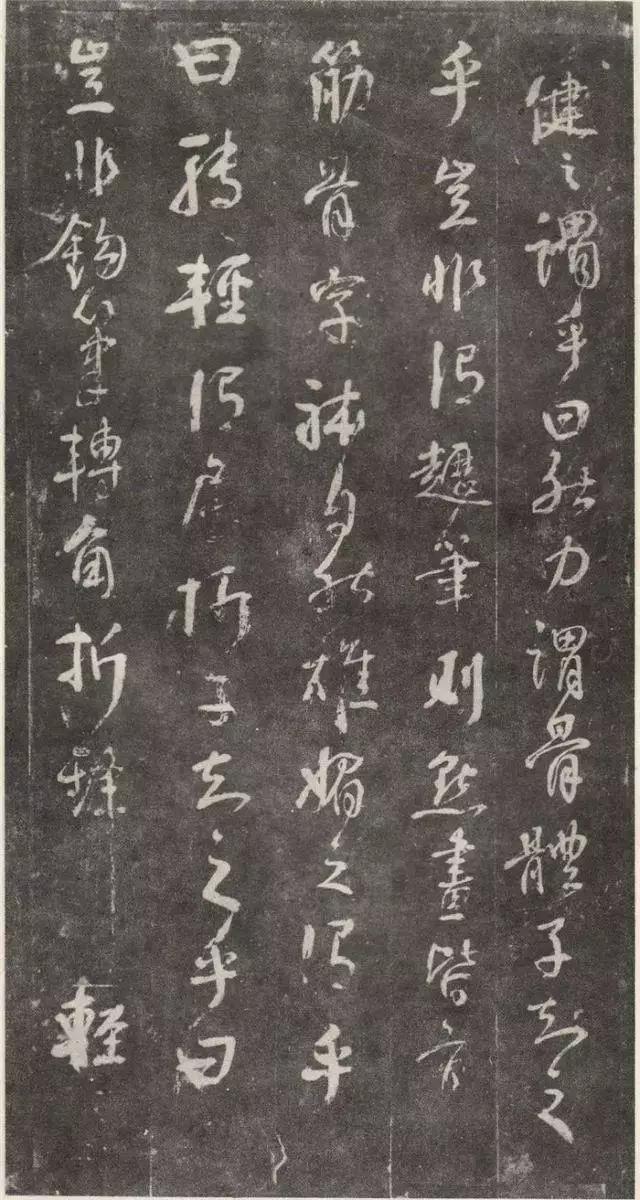 健之謂乎曰然力謂骨體子知之
乎豈非謂趯筆則點畫皆有
筋骨字躰自然雄媚之謂乎
曰轉輕謂屈折子知之乎曰
豈非鈎筆轉角折鋒輕